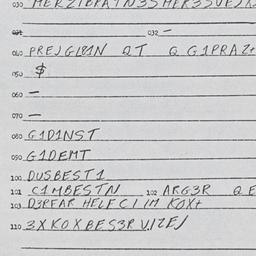 030 HERZIBPATN3SHER3SVEJX
031 032 —
040 PREJGL81N QT Q G1PRAZ+
050 $
060 —
070 —
080 G1D1NST
090 G1DEMT
100 DUSBEST1
101 C1MBESTN 102 ARG3R QE
103 D3RFAR HELFC I IM KOX+
110 3XKOXBES3R VIZEJ